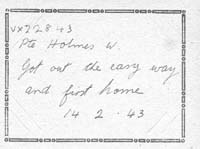 VX22843
Pte Holmes W.
Got out the easy way
and first home
14 2 . 43